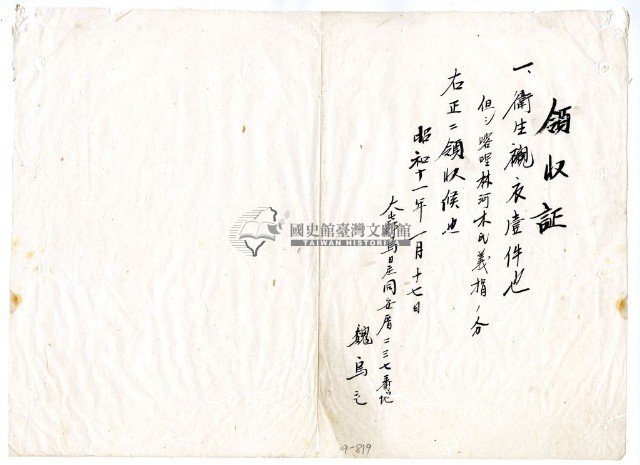 領収証
一、衛生襯衣壹件也
但シ喀哩林河木氏義捐ノ分
右正ニ領収候也
昭和十一年一月十七日
大屯郡烏日庄同安厝二三七番地
魏烏
國史館臺灣文獻館
TAIWAN HISTORICA
9-819